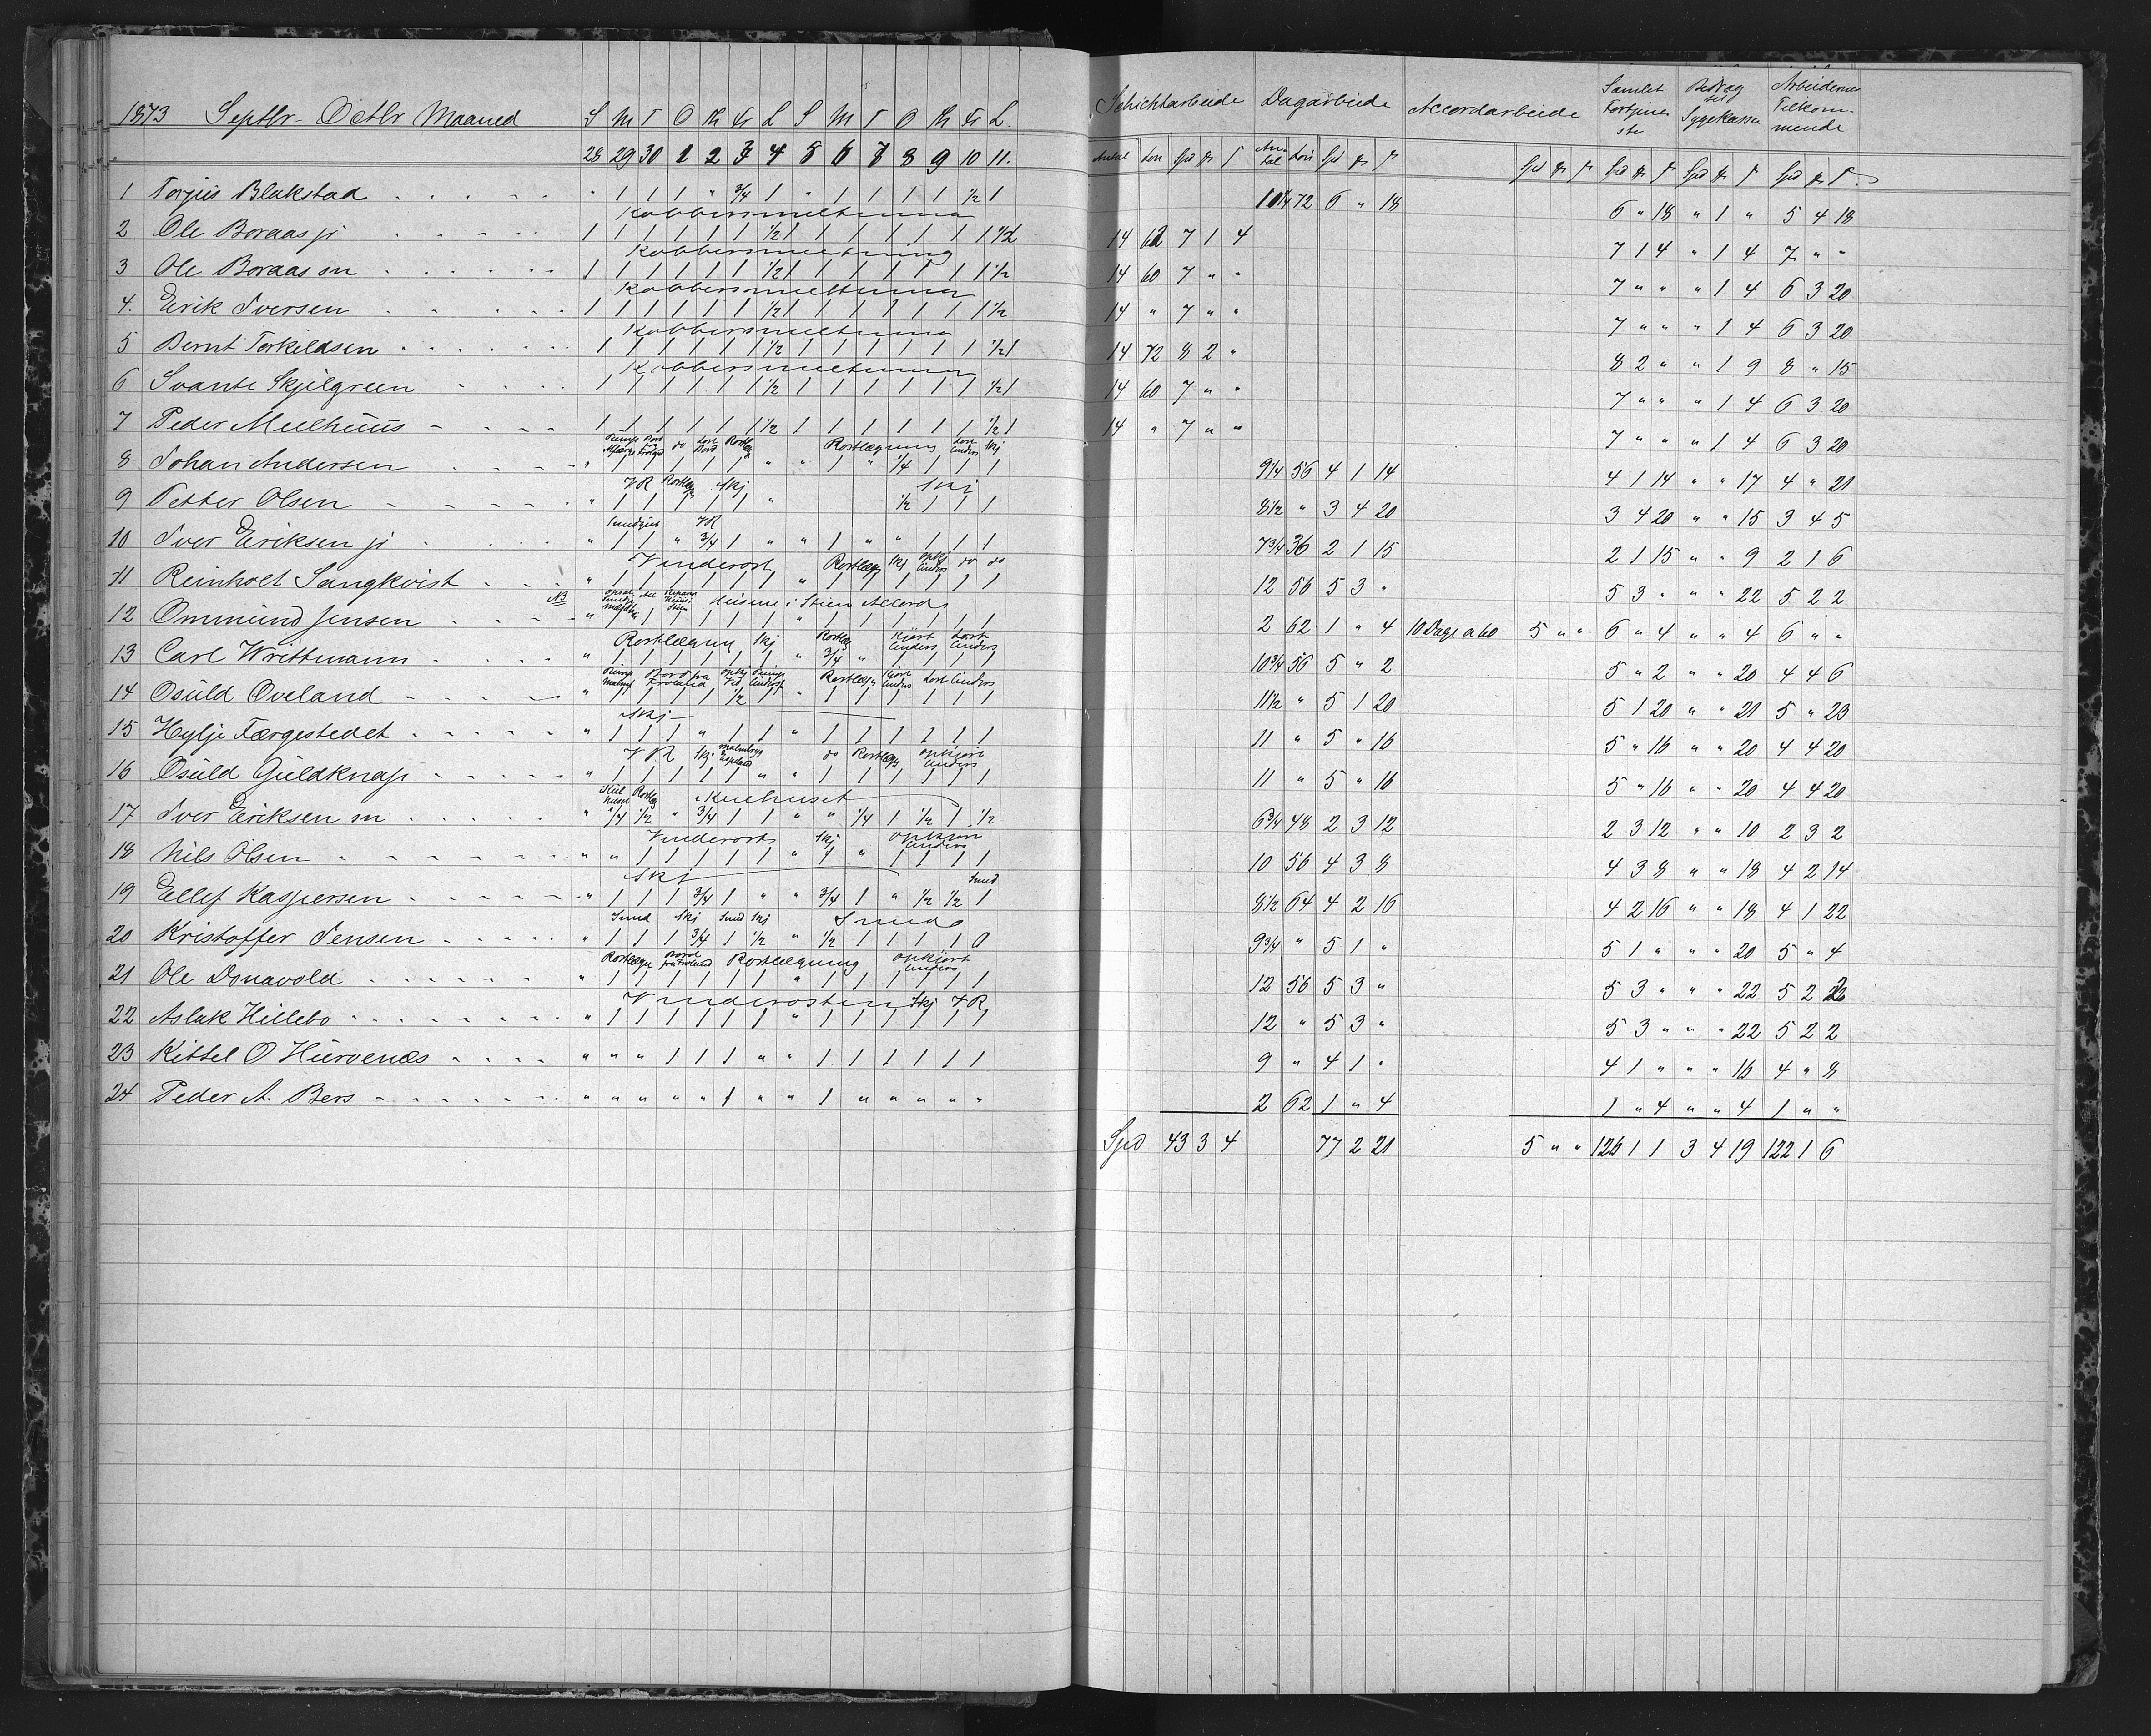 1873 Septbr- Octbr Maaned S M T O Th Fr L S M T O Th Fr L. Schichtarbeide Dagarbeide Accordarbeide Samlet Fortjeneste Bidrag til Sygekassen Arbeidernes Tilkommende
28 29 30 1 2 3 4 5 6 7 8 9 10 11. Antal Løn Spd An-tal Løn Spd Spd Spd Spd Spd
1 Torjus Blakstad " 1 1 1 " 3/4 1 " 1 1 1 1 1/2 1 10 1/4 72 6 " 18 6 " 18 " 1 " 5 4 18
Kobbersmeltning
2 Ole Boraas jr 1 1 1 1 1 1 1/2 1 1 1 1 1 1 1 1/2 14 62 7 1 4 7 1 4 " 1 4 7 " "
Kobbersmeltning
3 Ole Boraas sn 1 1 1 1 1 1 1/2 1 1 1 1 1 1 1 1/2 14 60 7 " " 7 " " " 1 4 6 3 20
Kobbersmeltning
4. Erik Iversen 1 1 1 1 1 1 1/2 1 1 1 1 1 1 1 1/2 14 " 7 " " 7 " " " 1 4 6 3 20
Kobbersmeltning
5 Bernt Torkildsen 1 1 1 1 1 1 1/2 1 1 1 1 1 1 1/2 1 14 72 8 2 " 8 2 " " 1 9 8 " 15
Kobbersmeltning
6 Svante Skjilgreen 1 1 1 1 1 1 1/2 1 1 1 1 1 1 1/2 1 14 60 7 " " 7 " " " 1 4 6 3 20
7 Peder Meelhuus 1 1 1 1 1 1 1/2 1 1 1 1 1 1 1/2 1 14 " 7 " " 7 " " " 1 4 6 3 20
do Rostlægning Skj
8 Johan Andersen " 1 1 1 1 1 " " 1 " 1/4 1 1 1 9 1/4 56 4 1 14 4 1 14 " " 17 4 " 21
VR Rostlægn Skj Skj
9 Petter Olsen " 1 1 1 1 1 " 1/2 1 1 1 8 1/2 " 3 4 20 3 4 20 " " 15 3 4 5
VR
10 Iver Eriksen jr " 1 1 " 3/4 1 " " 1 " " 1 1 1 7 3/4 36 2 1 15 2 1 15 " " 9 2 1 6
Venderost Rostlægn Skj do do
11 Reinholt Sangkvist " 1 1 1 1 1 1 " 1 1 1 1 1 1 12 56 5 3 " 5 3 " " " 22 5 2 2
NB i Stien Accord
12 Ommund Jensen " 1 1 1 1 1 1 " 1 1 1 1 1 1 2 62 1 " 4 10 Dage a 60 5 " " 6 " 4 " " 4 6 " "
Rostlægning Skj Rostlæg Kjørt Cinders Cinders
13 Carl Writtmann " 1 1 1 1 1 1 " 3/4 " 1 1 1 1 10 3/4 56 5 " 2 5 " 2 " " 20 4 4 6
Rostlægn Kjørt Cinders Cinders
14 Osuld Oveland " 1 1 1 1 1/2 1 " 1 1 1 1 1 1 11 1/2 " 5 1 20 5 1 20 " " 21 5 " 23
Skj
15 Hylje Færgestedet " 1 1 1 " 1 1 " 1 1 1 1 1 1 11 " 5 " 16 5 " 16 " " 20 4 4 20
VR Skj do Rostlægn opkjørt Cinders
16 Osuld Guldknap " 1 1 1 1 1 " " 1 1 1 1 1 1 11 " 5 " 16 5 " 16 " " 20 4 4 20
Rostlæg Kulhuset
17 Iver Eriksen sn " 1/4 1/2 " 3/4 1 1 " " 1/4 1 1/2 1 1/2 6 3/4 48 2 3 12 2 3 12 " " 10 2 3 2
Venderost Skj opkjørt Cinders
18 Nils Olsen " " 1 1 1 1 1 " 1 " 1 1 1 1 10 56 4 3 8 4 3 8 " " 18 4 2 14
Skj Smed
19 Ellef Kaspersen " 1 1 1 3/4 1 " " 3/4 1 " 1/2 1/2 1 8 1/2 64 4 2 16 4 2 16 " " 18 4 1 22
Smed Skj Smed Skj Smed
20 Kristoffer Jensen " 1 1 1 3/4 1 1/2 " 1/2 1 1 1 1 0 9 3/4 " 5 1 " 5 1 " " " 20 5 " 4
Rostlægn Rostlægning opkjørt Cinders
21 Ole Donavold " 1 1 1 1 1 1 " 1 1 1 1 1 1 12 56 5 3 " 5 3 " " " 22 5 2 2
Venderosten Skj VR
22 Aslak Hillebo " 1 1 1 1 1 1 " 1 1 1 1 1 1 12 " 5 3 " 5 3 " " " 22 5 2 2
23 Kittel O Hurvenæs " " " 1 1 1 " " 1 1 1 1 1 1 9 " 4 1 " 4 1 " " " 16 4 " 8
24 Peder A. Bers " " " " " 1 " " 1 " " " " " 2 62 1 " 4 1 " 4 " " 4 1 " "
Spd 43 3 4 77 2 21 5 " " 126 1 1 3 4 19 122 1 6